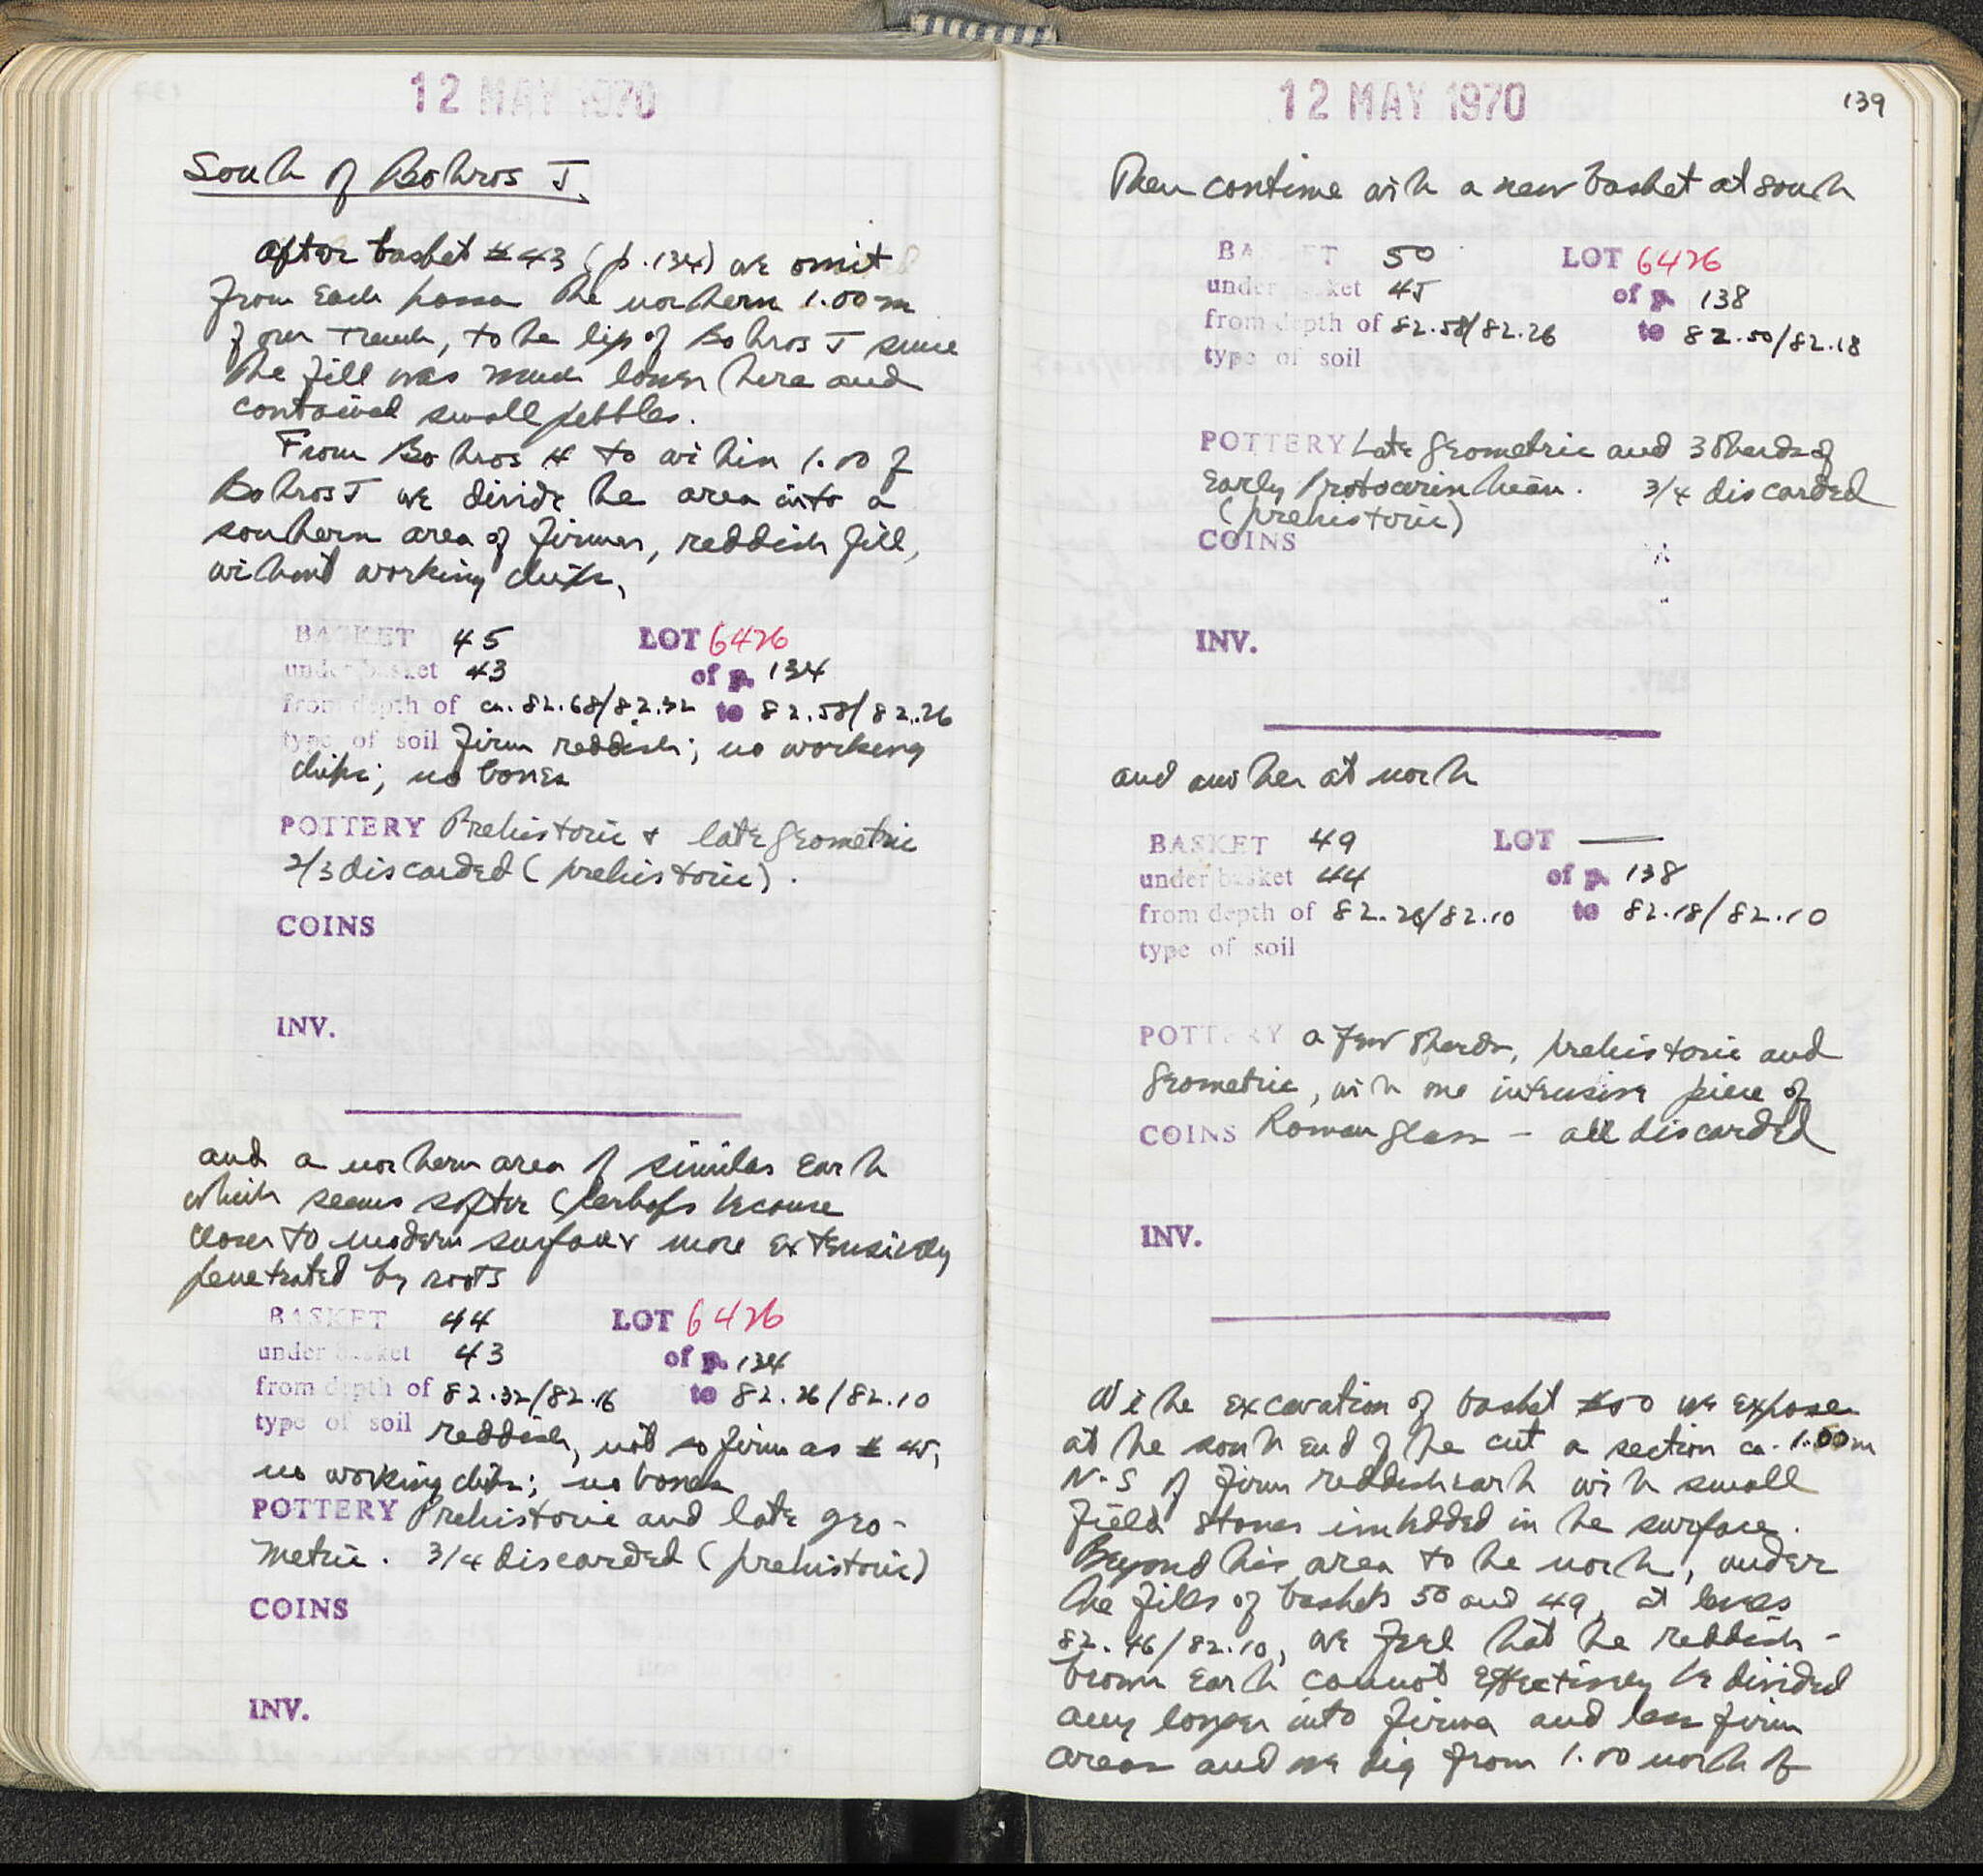 12 MAY 1970
South of Bothros J.
After basket #43 (p.134) we omit
from each passa the northern 1.00 m
of our trench, to the lip of Bothros J since
the fill was much lower here and
contained small pebbles.
From Bothros H to within 1.00 of
Bothros J we divide the area into a
southern area of firmer, reddish fill,
without working chips,
BASKET 45 LOT 6426
under basket 43 of p. 134
from depth of ca. 82.68/82.32 to 82.58/82.26
type of soil firm reddish; no working
chips; no bones
POTTERY Prehistoric + late geometric
2/3 discarded (prehistoric).
COINS
INV.
and a northern area of similar earth
which seems softer (perhaps because
closer to modern surface & more extensively
penetrated by roots
BASKET 44 LOT 6426
under basket 43 of p. 134
from depth of 82.32/82.16 to 82.26/82.10
type of soil reddish, not so firm as #45,
no working chips; no bones
POTTERY Prehistoric and late geo-
metric. 3/4 discarded (prehistoric)
COINS
INV.
12 MAY 1970
139
Then continue with a new basket at south
BASKET 50 LOT 6426
under basket 45 of p. 138
from depth of 82.58/82.26 to 82.50/82.18
type of soil
POTTERY Late geometric and 3 sherds of
Early Protocorinthian. 3/4 discarded
(prehistoric)
COINS
INV.
and another at north
BASKET 49 LOT —
under basket 44 of p. 138
from depth of 82.26/82.10 to 82.18/82.10
type of soil
POTTERY a few sherds, prehistoric and
geometric, with one intrusive piece of
COINS Roman glass – all discarded
INV.
With the excavation of basket #50 we expose
at the south end of the cut a section ca. 1.00 m
N-S of firm reddish earth with small
field stones imbedded in the surface.
Beyond this area to the north, under
the fills of baskets 50 and 49, at levels
82.46/82.10, we feel that the reddish-
brown earth cannot effectively be divided
any longer into firm and less firm
areas and we dig from 1.00 north of